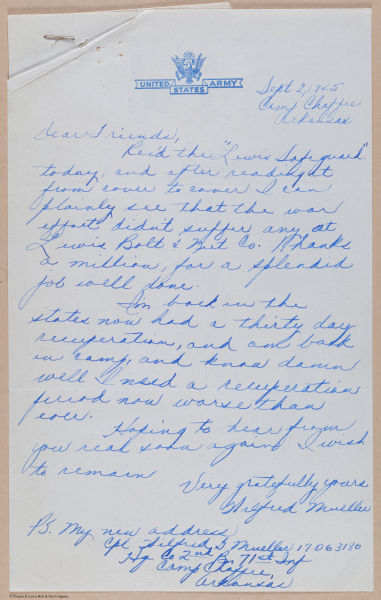 UNITED STATES ARMY
Sept 2, 1945
Camp Chaffee
Arkansas
Dear Friends,
Rec'd the "Lewis Safeguard"
today, and after reading it
from cover to cover I can
plainly see that the war
effort, didn't suffer any at
Lewis Bolt & Nut Co. Thanks
a million, for a splendid
job well done.
I'm back in the
states now had a thirty day
recuperation, and am back
in camp, and know damn
well I need a recuperation
period now worse than
ever.
Hoping to hear from
you real soon again. I wish
to remain
Very gratefully yours
Wilfred Mueller
PS. My new address
Cpl. Wilfred J Mueller 17063180
Hq Co 2nd Bn. 71st Inf
Camp Chaffee,
Arkansas